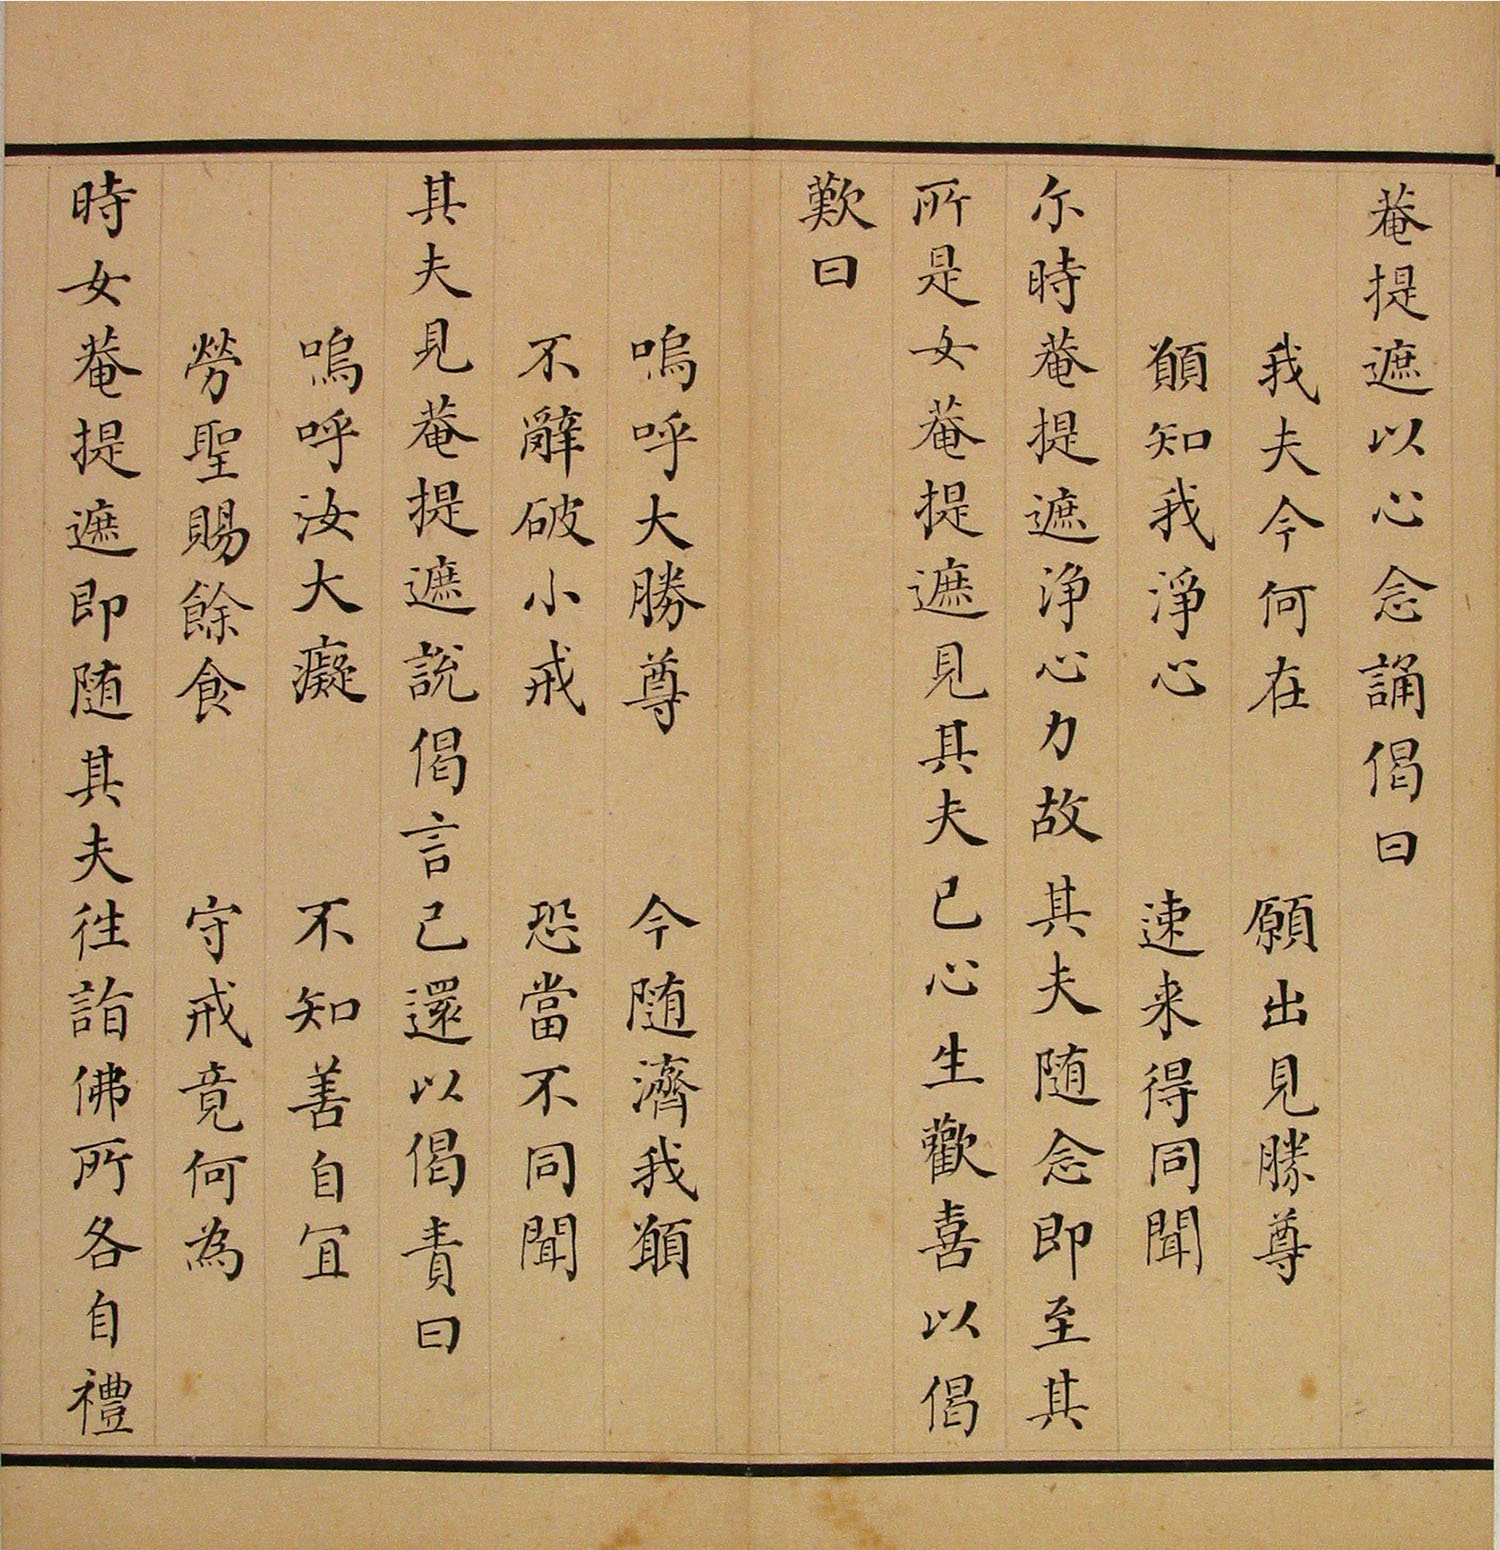 菴提遮以心念誦偈曰
我夫今何在　願出見勝尊
顚知我淨心　速来得同聞
尓時菴提遮浄心力故其夫随念即至其
所是女菴提遮見其夫已心生歡喜以偈
歎曰
嗚呼大勝尊　今随濟我顚
不辭破小戒　恐當不同聞
其夫見菴提遮說偈言已還以偈責曰
嗚呼汝大癡　不知善自冝
勞聖賜餘食　守戒竟何為
時女菴提遮即随其夫徃詣佛所各自禮